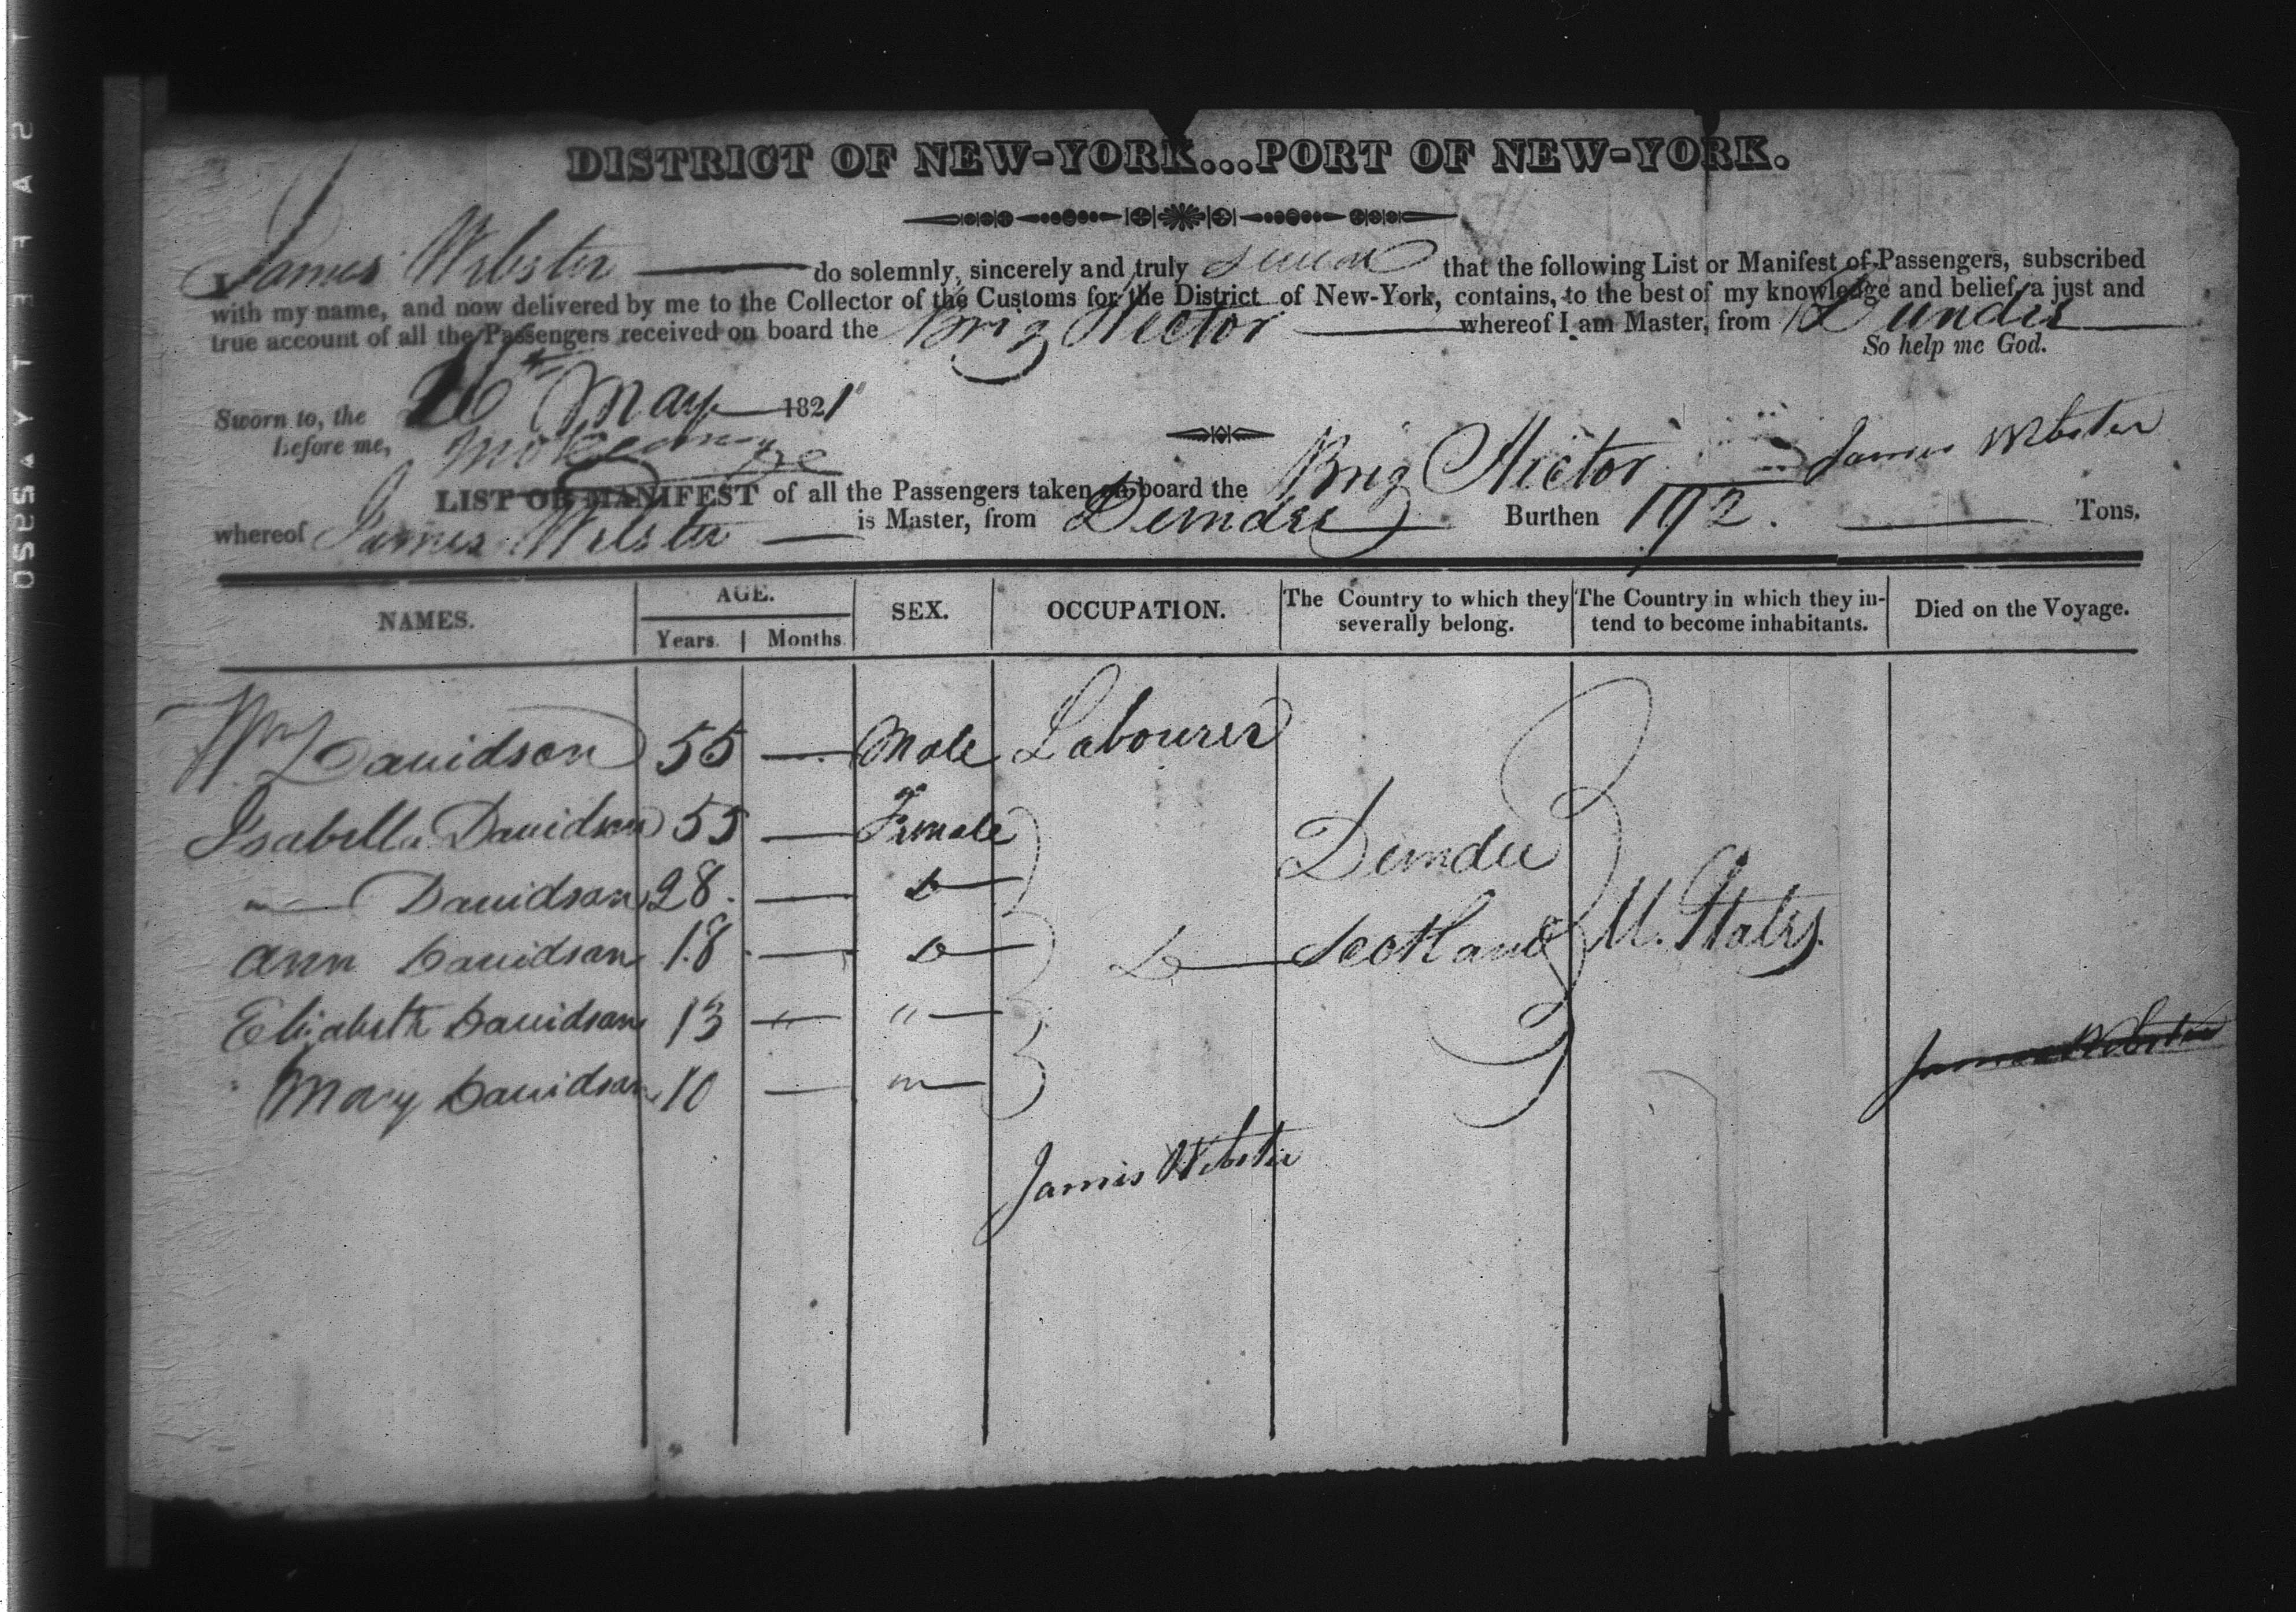 DISTRICT OF NEW-YORK...PORT OF NEW-YORK.
I James Webster do solemnly, sincerely and truly swear that the following List or Manifest of Passengers, subscribed
with my name, and now delivered by me to the Collector of the Customs for the District of New-York, contains, to the best of my knowledge and belief, a just and
true account of all the Passengers received on board the Brig Hector whereof I am Master, from Dundee
So help me God.
Sworn to, the 26th May 1821
before me,
James Webster
LIST OR MANIFEST of all the Passengers taken on board the Brig Hector
whereof James Webster is Master, from Dundee Burthen 192. Tons.
NAMES. AGE. SEX. OCCUPATION. The Country to which they severally belong. The Country in which they intend to become inhabitants. Died on the Voyage.
Years. Months.
Wm Davidson 55 — Male Labourer
Isabella Davidson 55 — Female
— Davidson 28 — Do Dundee
Ann Davidson 18 — Do Do Scotland U. States
Elizabeth Davidson 13 " "
Mary Davidson 10 — "
James Webster
James Webster